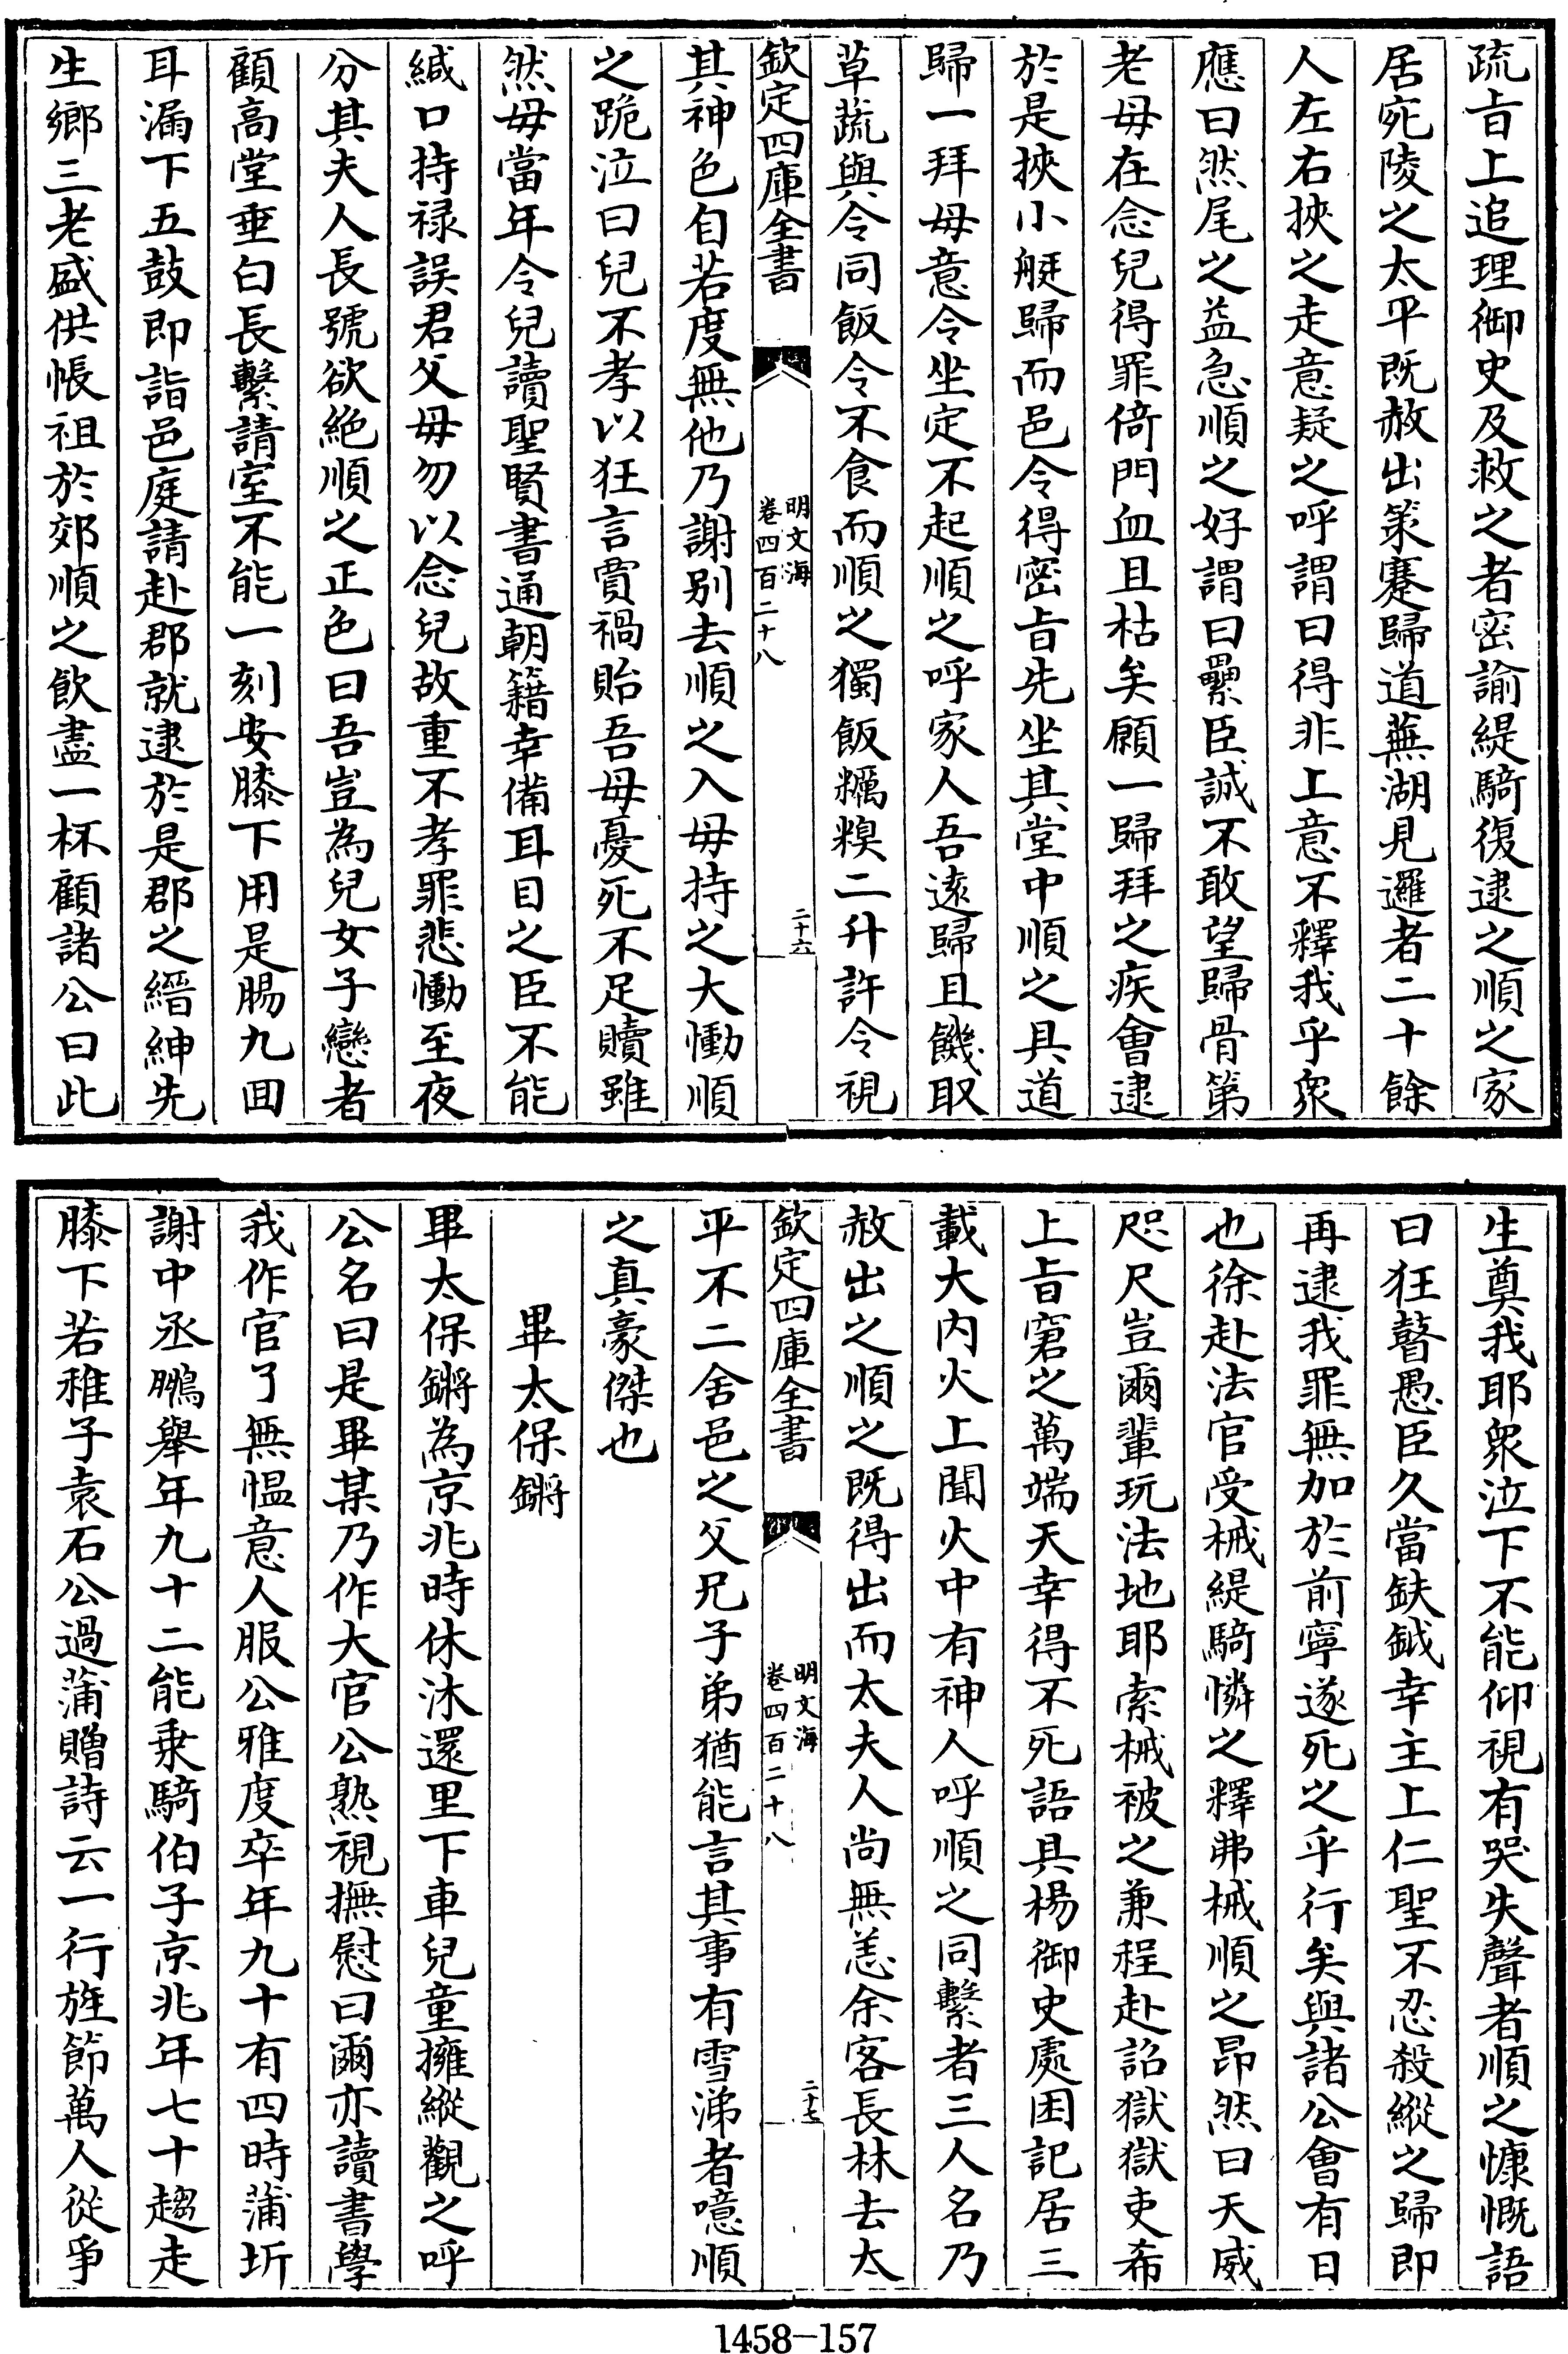 疏㫖上追理御史及救之者密諭緹騎復逮之順之家
居宛陵之太平既赦出策蹇歸道蕪湖見邏者二十餘
人左右挾之走意疑之呼謂曰得非上意不釋我乎衆
應曰然尾之益急順之好謂曰纍臣誠不敢望歸骨第
老母在念兒得罪倚門血且枯矣願一歸拜之疾會逮
於是挾小艇歸而邑令得密㫖先坐其堂中順之具道
歸一拜母意令坐定不起順之呼家人吾逺歸且饑取
草蔬與令同飯令不食而順之獨飯糲糗二升許令視
欽定四庫全書
明文海
卷四百二十八
二十六
其神色自若度無他乃謝别去順之入母持之大慟順
之跪泣曰兒不孝以狂言賈禍貽吾母憂死不足贖雖
然母當年令兒讀聖賢書通朝籍幸備耳目之臣不能
緘口持禄誤君父母勿以念兒故重不孝罪悲慟至夜
分其夫人長號欲絶順之正色曰吾豈為兒女子戀者
顧髙堂垂白長繫請室不能一刻安膝下用是腸九回
耳漏下五鼓即詣邑庭請赴郡就逮於是郡之縉紳先
生鄉三老盛供帳祖於郊順之飲盡一杯顧諸公曰此
生奠我耶衆泣下不能仰視有哭失聲者順之慷慨語
曰狂瞽愚臣久當鈇鉞幸主上仁聖不忍殺縱之歸即
再逮我罪無加於前寧遂死之乎行矣與諸公會有日
也徐赴法官受械緹騎憐之釋弗械順之昂然曰天威
咫尺豈爾輩玩法地耶索械被之兼程赴詔獄獄吏希
上㫖窘之萬端天幸得不死語具楊御史處困記居三
載大内火上聞火中有神人呼順之同繫者三人名乃
赦出之順之既得出而太夫人尚無恙余客長林去太
欽定四庫全書
明文海
卷四百二十八
二十七
平不二舍邑之父兄子弟猶能言其事有雪涕者噫順
之真豪傑也
畢太保鏘
畢太保鏘為京兆時休沐還里下車兒童擁縱觀之呼
公名曰是畢某乃作大官公熟視撫慰曰爾亦讀書學
我作官了無愠意人服公雅度卒年九十有四時蒲圻
謝中丞鵬舉年九十二能乗騎伯子京兆年七十趨走
膝下若稚子袁石公過蒲贈詩云一行旌節萬人從爭
1458—157